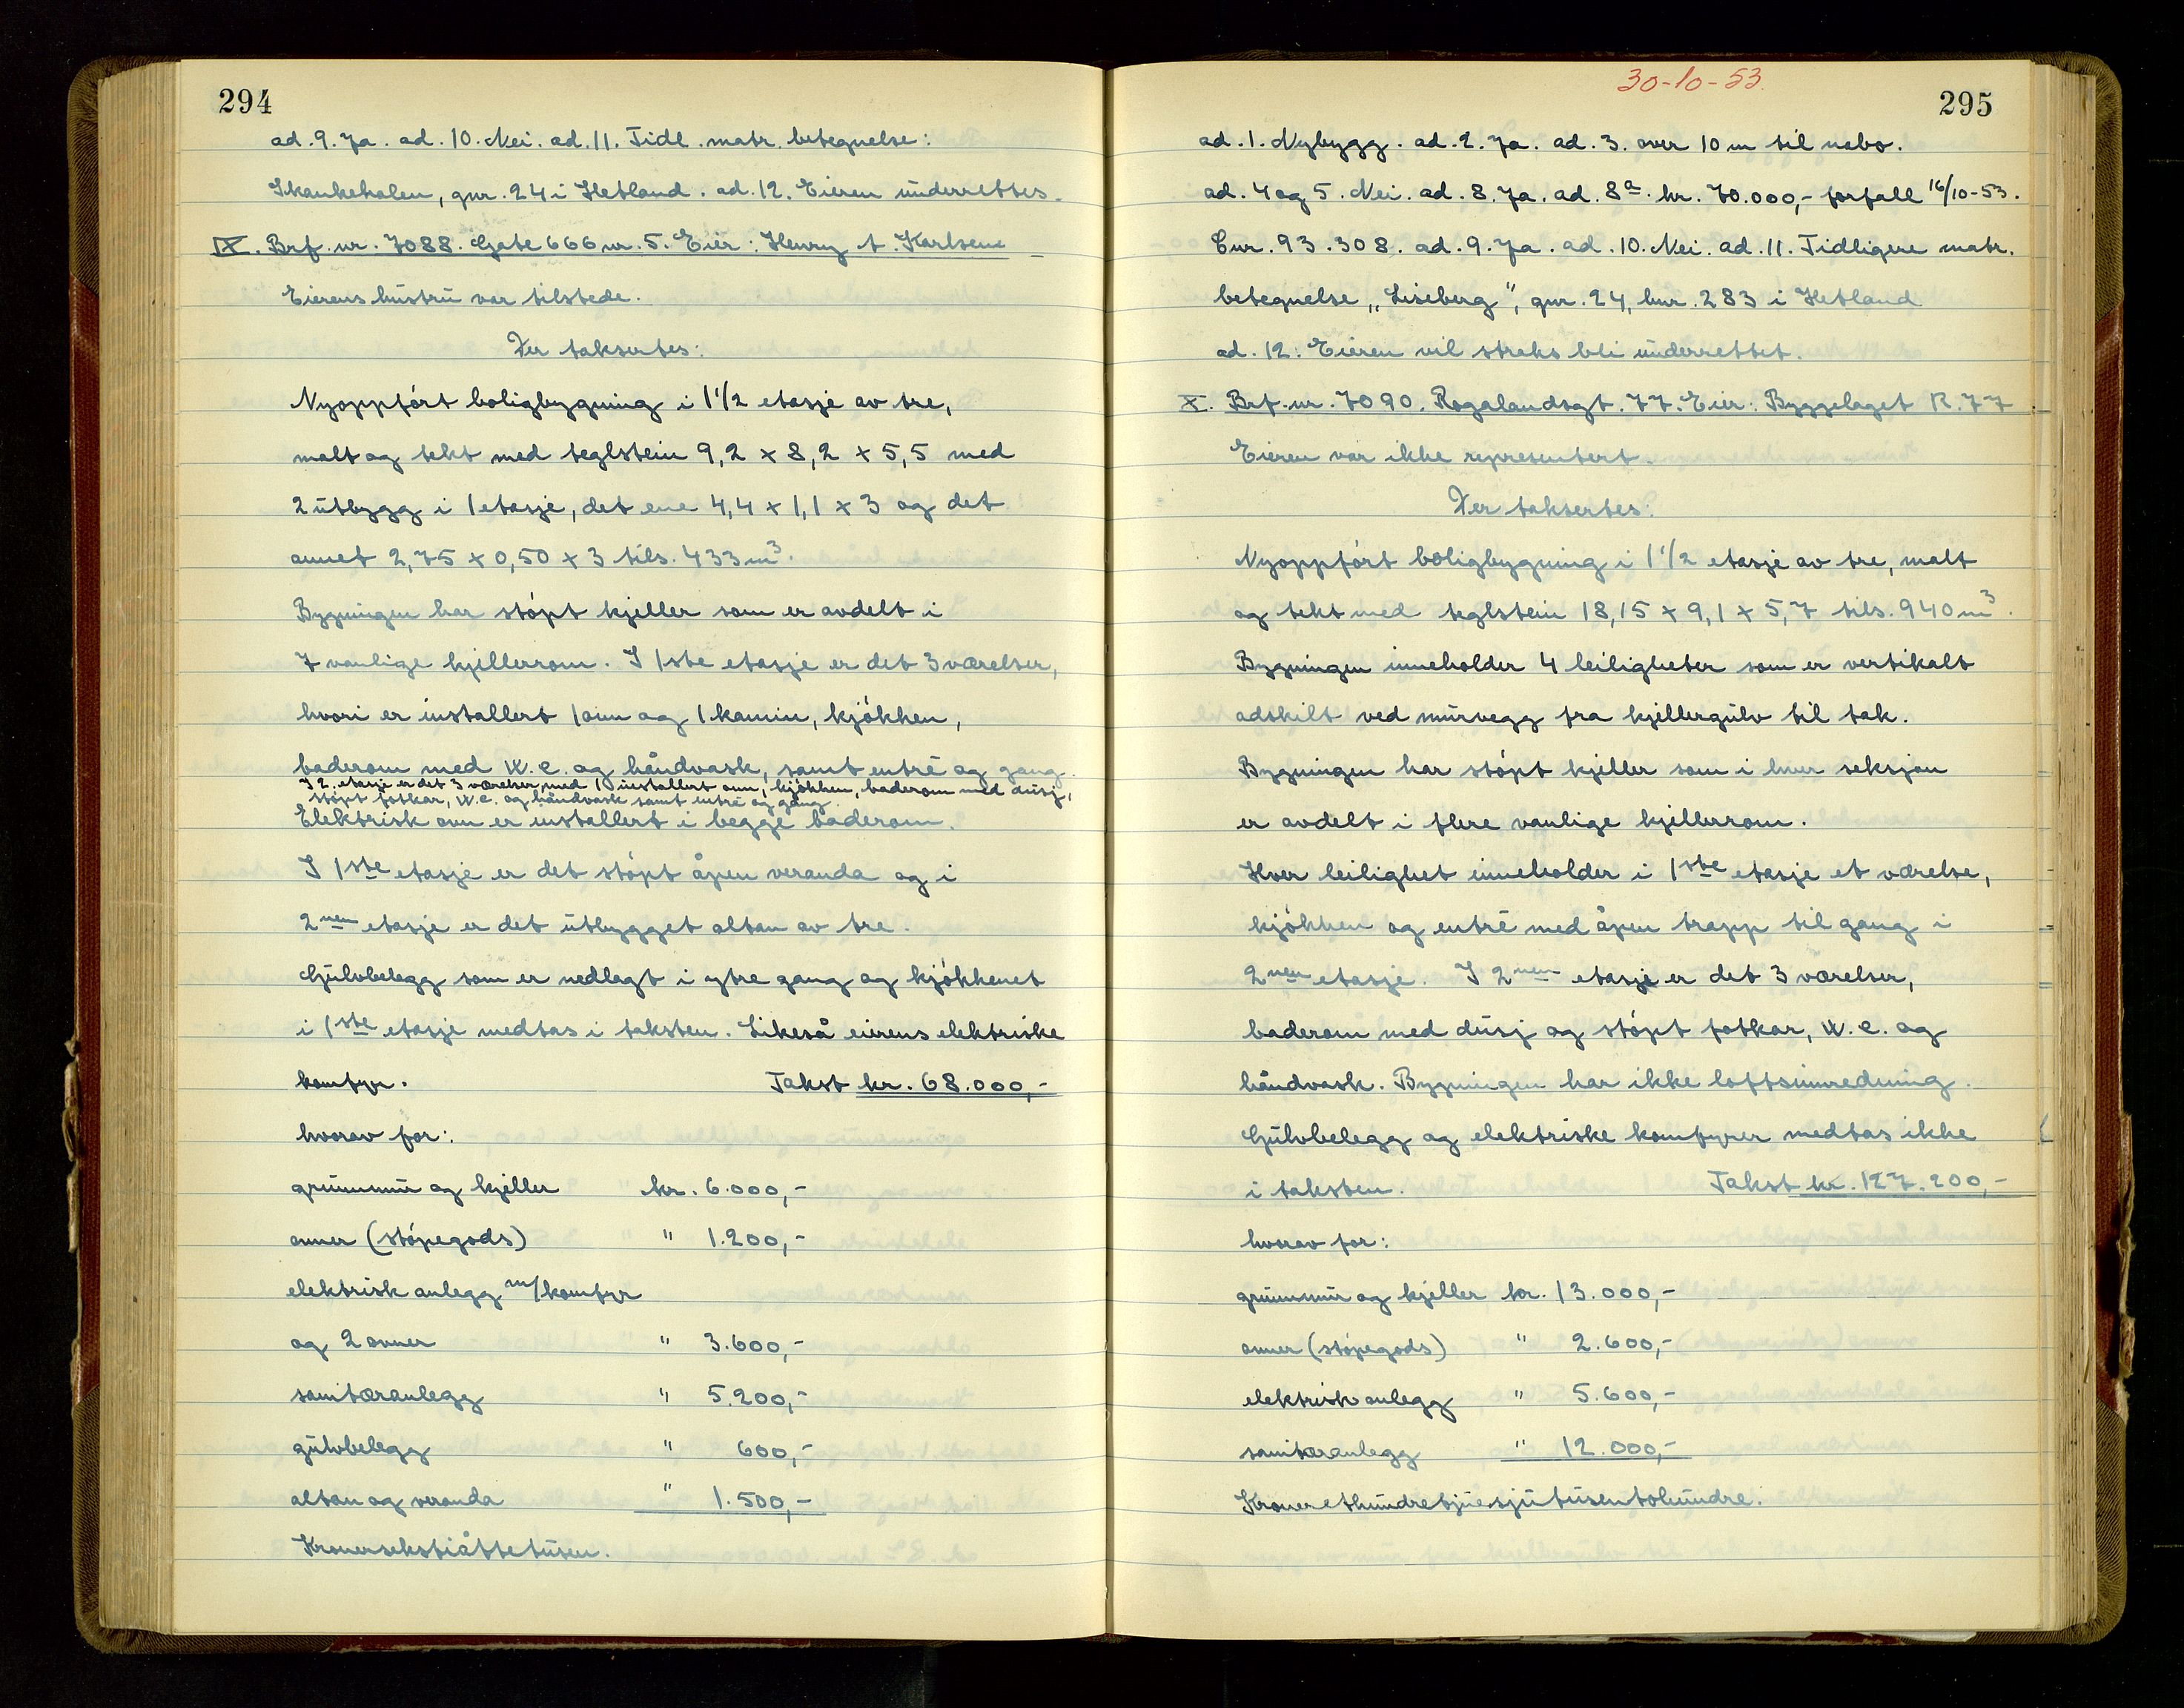 294
ad. 9. Ja. ad. 10. Nei. ad. 11. Tidl. matr. betegnelse:
Skankeholen, gnr. 24 i Hetland. ad. 12. Eieren underrettes.
IX. Brf. nr. 7088. Gate 666 nr. 5. Eier: Henry A. Karlsen
Eierens hustru var tilstede.
Der taksertes:
Nyoppført boligbygning i 1 1/2 etasje av tre,
malt og tekt med teglstein 9,2 x 8,2 x 5,5 med
2 utbygg i 1 etasje, det ene 4,4 x 1,1 x 3 og det
annet 2,75 x 0,50 x 3 tils. 433 m³.
Bygningen har støpt kjeller som er avdelt i
7 vanlige kjellerrom. I 1ste etasje er det 3 værelser,
hvori er installert 1 ovn og 1 kamin, kjøkken,
baderom med W.C. og håndvask, samt entré og gang.
I 2. etasje er det 3 værelser med 1 installert ovn, kjøkken, baderom med dusj,
støpt fotkar, W.C. og håndvask samt entré og gang.
Elektrisk ovn er installert i begge baderom.
I 1ste etasje er det støpt åpen veranda og i
2nen etasje er det utbygget altan av tre.
Gulvbelegg som er nedlagt i ytre gang og kjøkkenet
i 1ste etasje medtas i taksten. Likeså eierens elektriske
komfyr. Takst kr. 68.000,-
hvorav for:
grunnmur og kjeller kr. 6.000,-
ovner (støpegods) " 1.200,-
elektrisk anlegg m/komfyr
og 2 ovner " 3.600,-
sanitæranlegg " 5.200,-
gulvbelegg " 600,-
altan og veranda " 1.500,-
Kronersekstiåttetusen.
30-10-53.
295
ad. 1. Nybygg. ad. 2. Ja. ad. 3. over 10 m til nabo.
ad. 4 og 5. Nei. ad. 8. Ja. ad. 8a. kr. 70.000,- forfall 16/10-53.
Enr. 93.308. ad. 9. Ja. ad. 10. Nei. ad. 11. Tidligere matr.
betegnelse „Liseberg", gnr. 24, bnr. 283 i Hetland
ad. 12: Eieren vil straks bli underrettet.
X. Brf. nr. 7090. Rogalandsgt. 77. Eier: Byggelaget R. 77
Eieren var ikke representert.
Der taksertes:
Nyoppført boligbygning i 1 1/2 etasje av tre, malt
og tekt med teglstein 18,15 x 9,1 x 5,7 tils. 940 m³.
Bygningen inneholder 4 leiligheter som er vertikalt
adskilt ved murvegg fra kjellergulv til tak.
Bygningen har støpt kjeller som i hver seksjon
er avdelt i flere vanlige kjellerrom.
Hver leilighet inneholder i 1ste etasje et værelse,
kjøkken og entré med åpen trapp til gang i
2nen etasje. I 2nen etasje er det 3 værelser,
baderom med dusj og støpt fotkar, W.C. og
håndvask. Bygningen har ikke loftsinnredning.
Gulvbelegg og elektriske komfyrer medtas ikke
i taksten. Takst kr. 127.200,-
hvorav for:
grunnmur og kjeller kr. 13.000,-
ovner (støpegods) " 2.600,-
elektrisk anlegg " 5.600,-
sanitæranlegg " 12.000,-
Kroneretthundretjuesjutusentohundre.